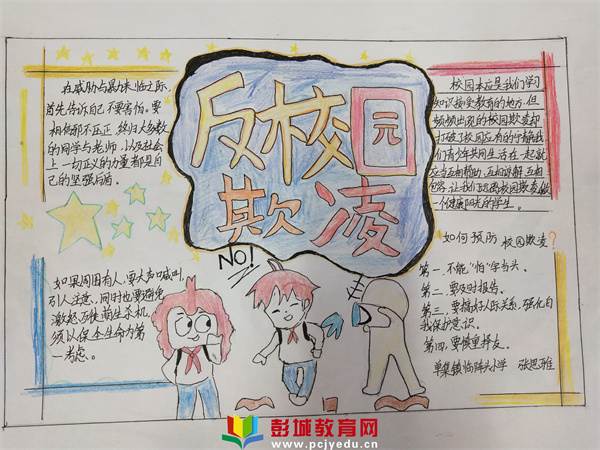 反校园
欺凌
在威胁与暴力来临之际,
首先告诉自己不要害怕。要
相信邪不压正,终归大多数
的同学与老师,以及社会
上一切正义的力量都是自
己的坚强后盾。
如果周围有人,要大声喊叫,
引人注意,同时也要避免
激怒歹徒萌生杀机,
须以保全生命为第
一考虑。
NO!
校园本应是我们学习
知识接受教育的地方,但
频频出现的校园欺凌却
打破了校园应有的宁静我
们青少年共同生活在一起就
应当互相帮助,互相谅解,互相
包容,让我们远离校园欺凌做
一个健康阳光的学生。
如何预防校园欺凌?
第一,不能"怕"字当头。
第二,要及时报告。
第三,要搞好人际关系,强化自
我保护意识。
第四,要慎重择友。
单集镇临陴小学 张思雅
彭城教育网
www.pcjyedu.cn